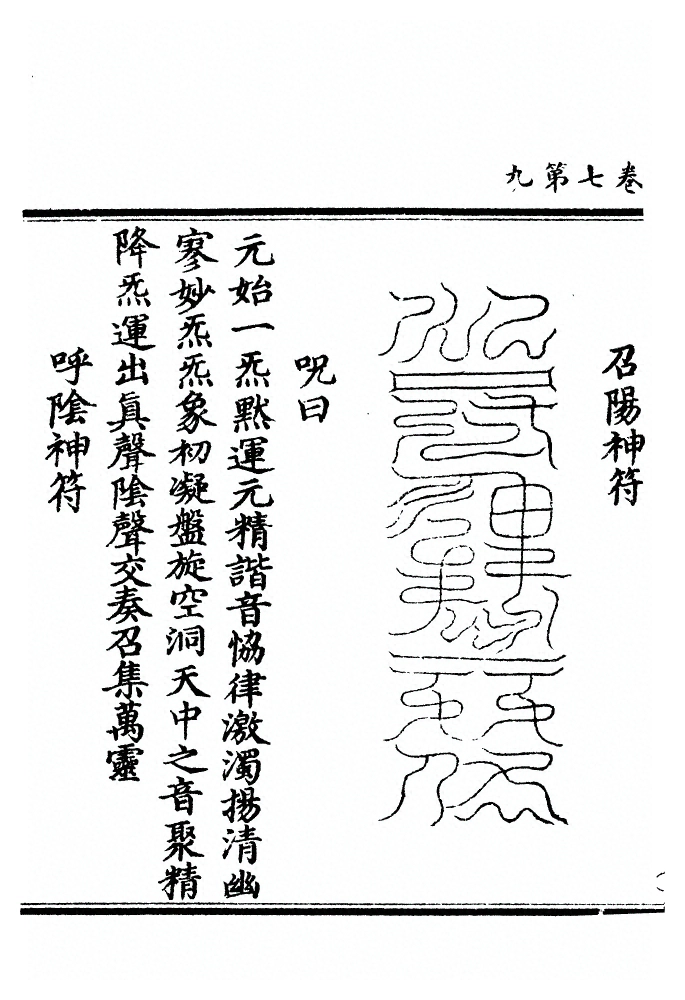 卷七第九
召陽神符
咒曰
元始一炁默運元精諧音恊律激濁揚清幽
寥妙炁炁象初凝盤旋空洞天中之音聚精
降炁運出眞聲陰聲交奏召集萬靈
呼陰神符